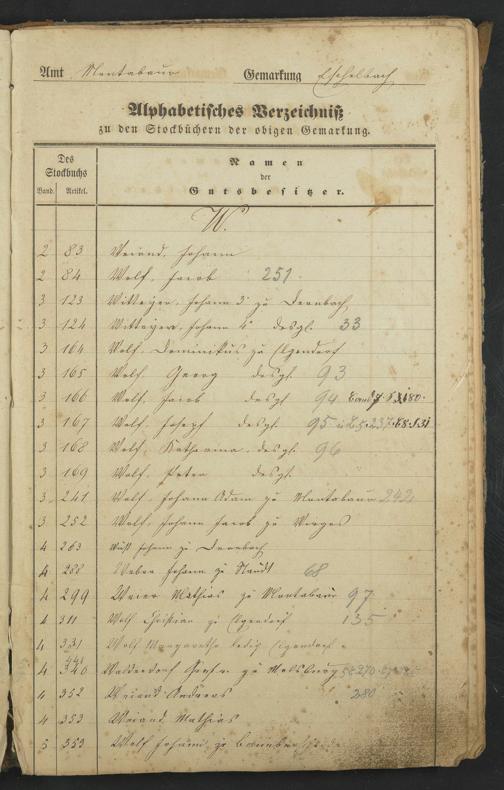 Amt Montabaur Gemarkung Eschelbach
Alphabetisches Verzeichniß
zu den Stockbüchern der obigen Gemarkung.
Des Stockbuchs
Band. Artikel.
Namen
der
Gutsbesitzer.
W.
2 83 Weiand, Johann
2 84 Wolf, Jacob 251.
3 123 Johann 3r zu Dernbach
3 124 Johann 4r desgl. 33
3 164 Wolf, Dominikus zu Elgendorf
3 165 Wolf, Georg desgl. 93
3 166 Wolf, Jacob desgl. 94.
3 167 Wolf, Joseph desgl. 95
3 168 Wolf, Katharina desgl. 96
3 169 Wolf, Peter desgl.
3 241 Wolf, Johann Adam zu Montabaur 242
3 252 Wolf, Johann Jacob zu Wirges
4 263 Johann zu Dernbach
4 288 Weber Johann zu Staudt 68
4 299 Weier Mathias zu Montabaur 97
4 311 Wolf Christian zu Elgendorf 135
4 331 Wolf Margaretha ledig Elgendorf
4 340 Walderdorf zu Molsberg
4 352 Weiand Andreas 280
4 353 Weiand Mathias
5 353 Wolf Johann zu